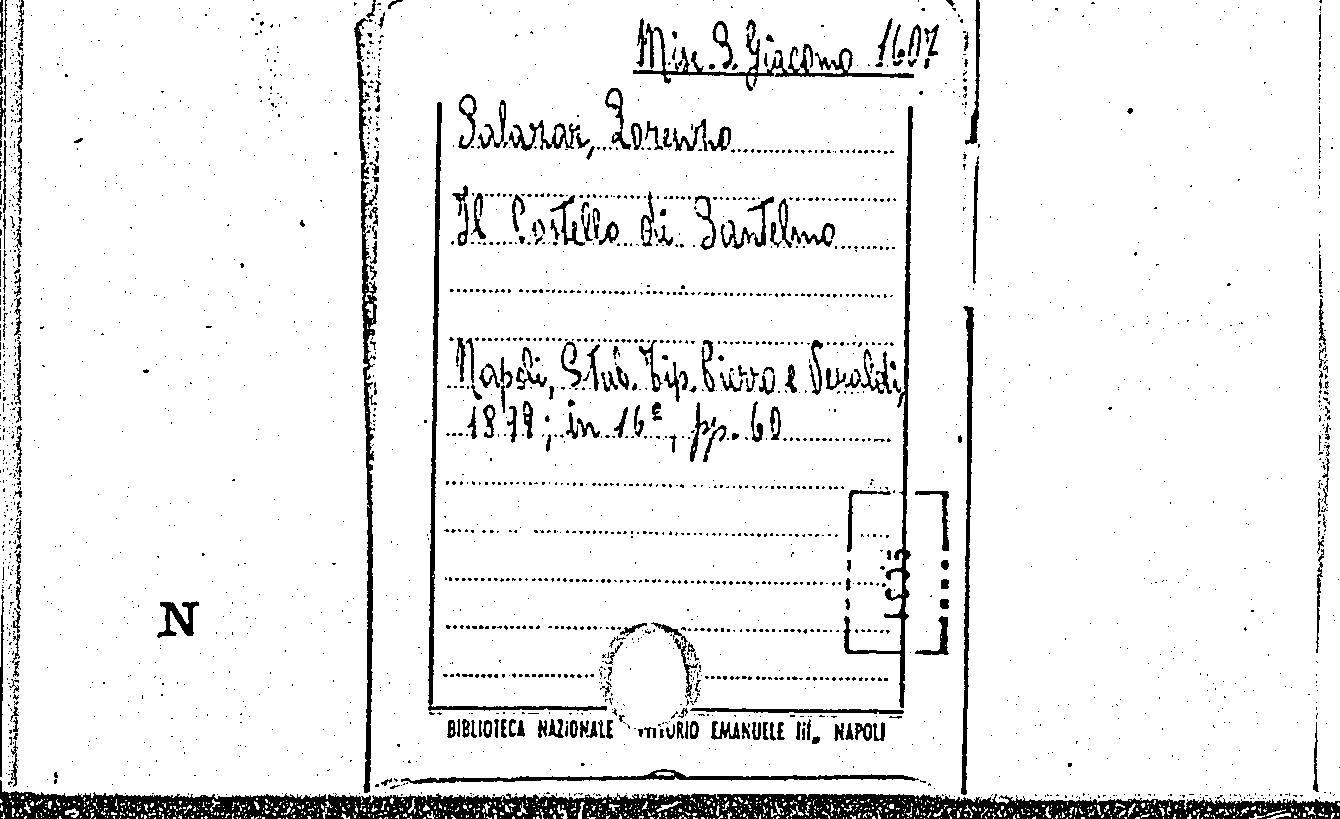 Misc. S. Giacomo 1607
Salazar, Lorenzo
Il Castello di Santelmo
Napoli, Stab. Tip. Pierro e Veraldi,
1879; in 16º, pp. 60
N
BIBLIOTECA NAZIONALE VITTORIO EMANUELE III, NAPOLI